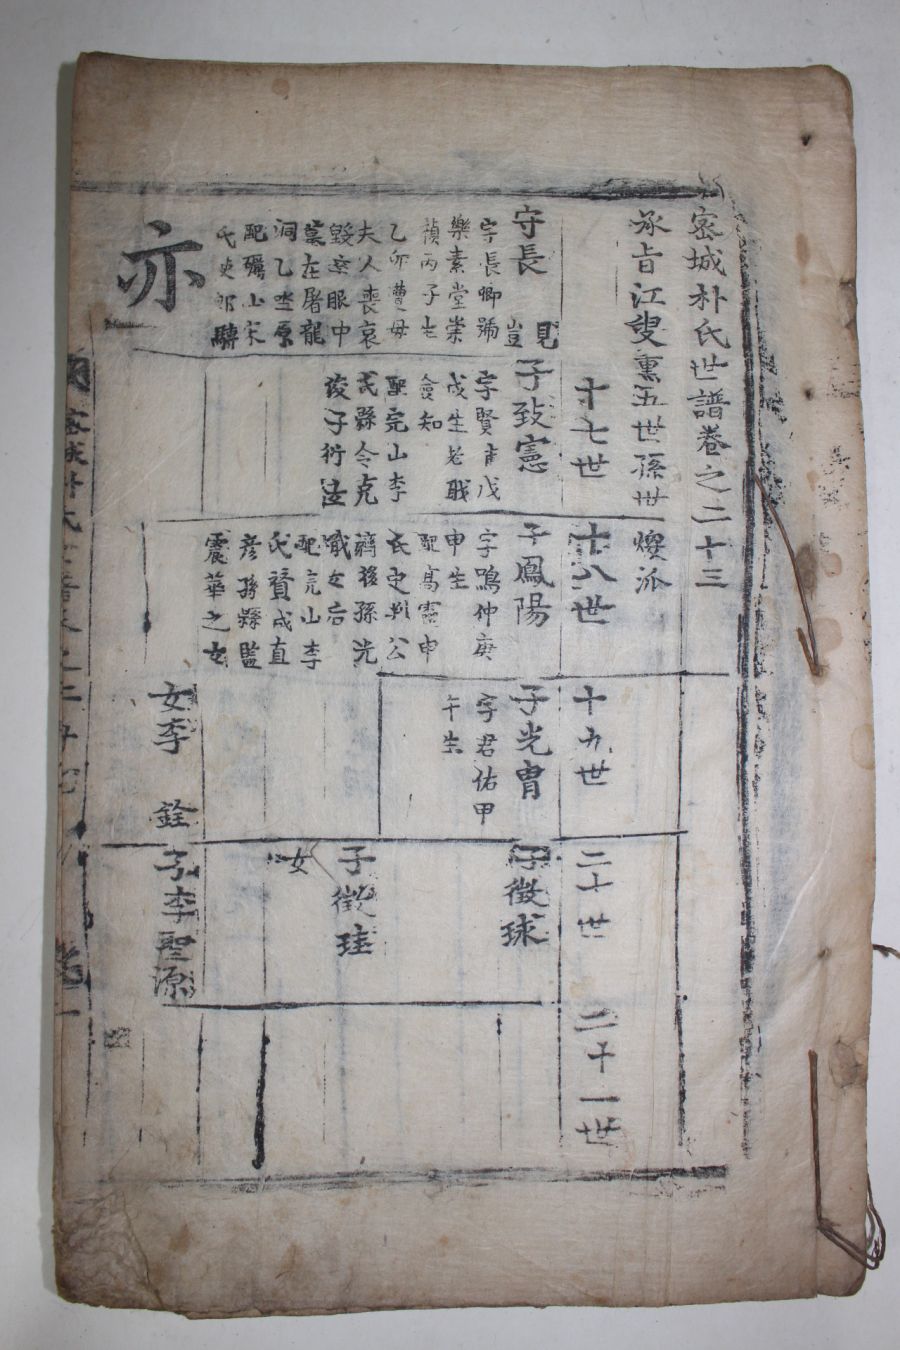 密城朴氏世譜卷之二十三
承旨江叟薰五世孫世
煥派
十七世
十八世
十九世
二十世
二十一世
守長
見
豈
字長卿號
樂素堂崇
禎丙子生
乙卯遭母
夫人喪哀
毀卒服中
墓在屠龍
洞乙坐原
配礪山宋
氏吏郎騏
亦
子致憲
字賢甫戊
戌生老職
僉知
配完山李
氏縣令克
後子衍法
子鳳陽
字鳴仲庚
申生
配高靈申
氏定判公
濟後孫光
職女后
配完山李
氏贊成直
彦孫縣監
震華之女
子光胄
字君佑甲
午生
女李 銓
子徵球
子徵珪
女
子李聖源